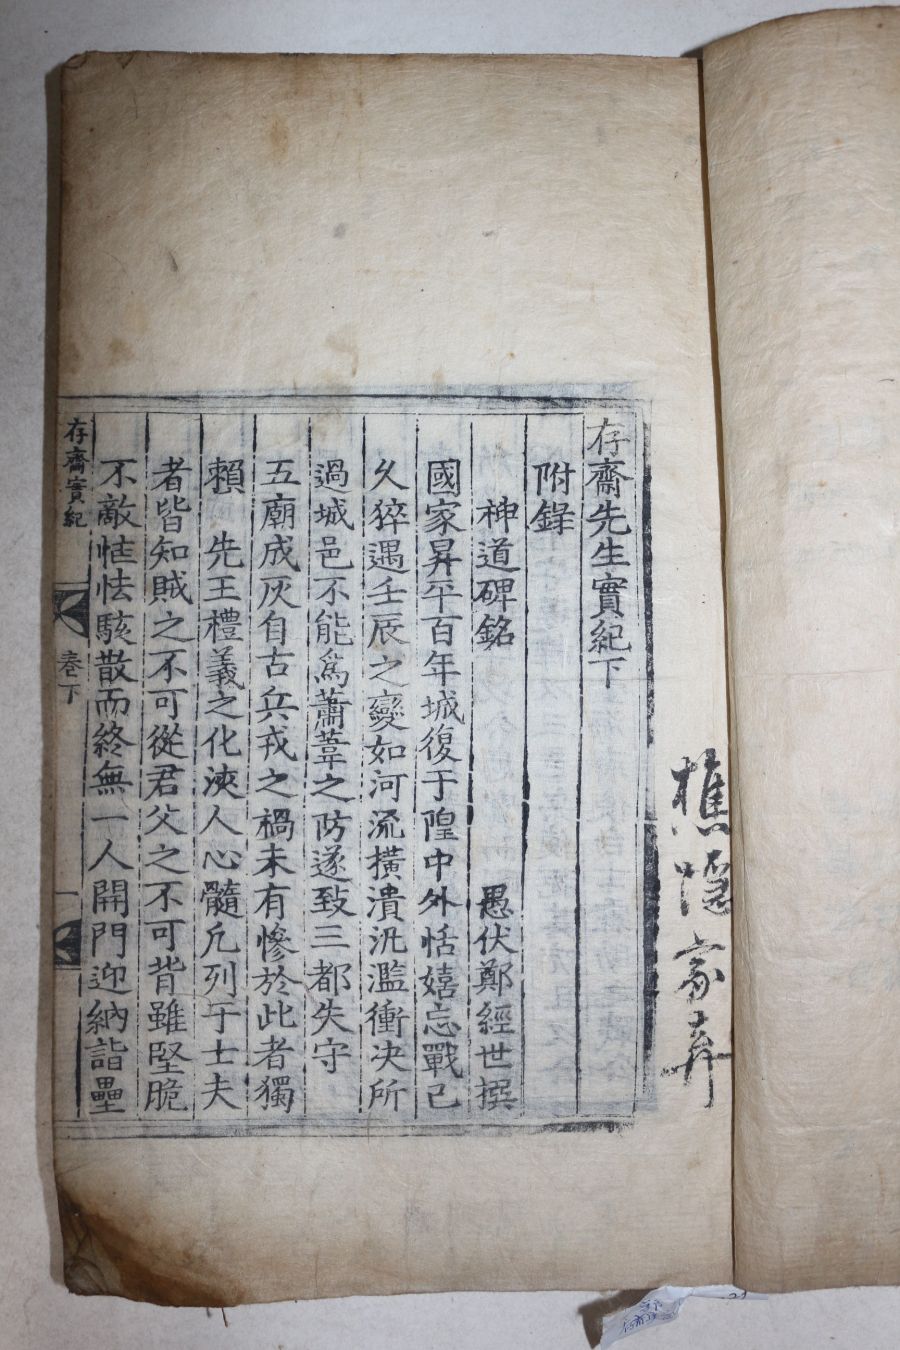 樵隱家弆
存齋先生實紀下
附錄
神道碑銘 愚伏鄭經世撰
國家昇平百年城復于隍中外恬嬉忘戰已
久猝遇壬辰之變如河流橫潰汎濫衝决所
過城邑不能爲蕭葦之防遂致三都失守
五廟成灰自古兵戎之禍未有慘於此者獨
賴 先王禮義之化浹人心髓凡列于士夫
者皆知賊之不可從君父之不可背雖堅脆
不敵恇怯駭散而終無一人開門迎納詣壘
存齋實紀 卷下 一